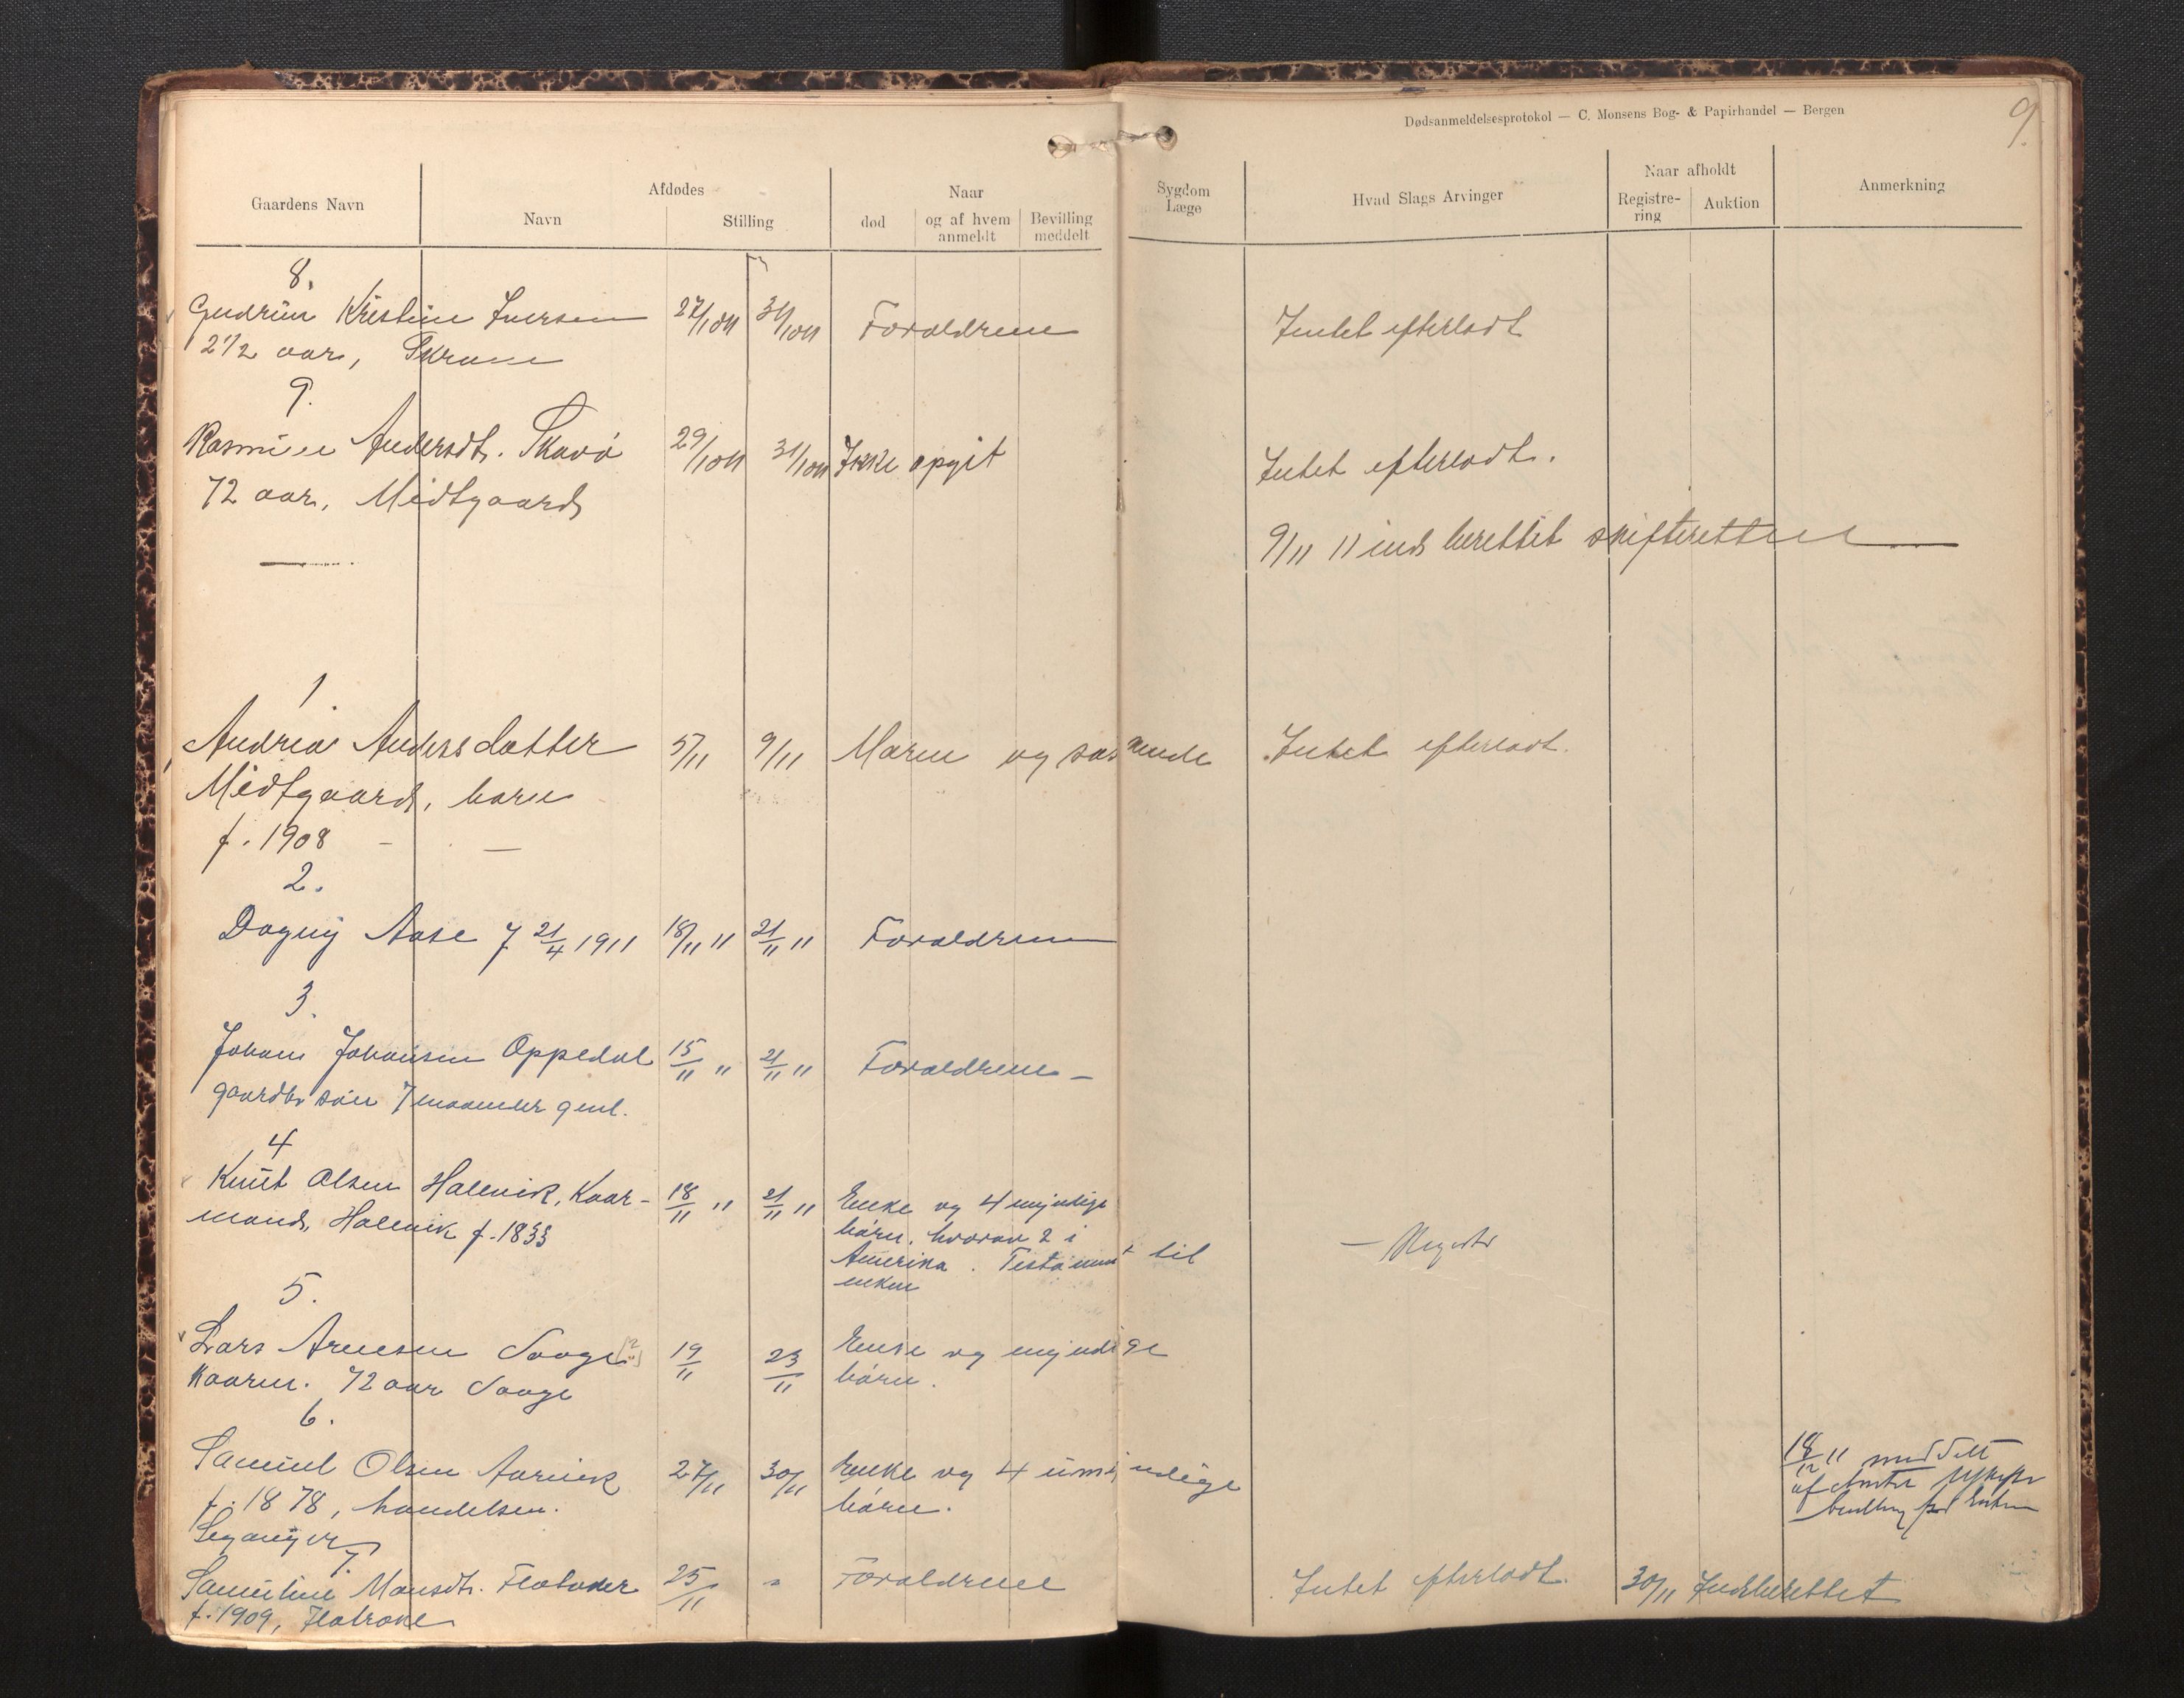 Dødsanmeldelsesprotokol — C. Monsens Bog- & Papirhandel — Bergen
9.
Gaardens Navn
Afdødes
Navn
Stilling
Naar
død
og af hvem
anmeldt
Bevilling
meddelt
Sygdom
Læge
Hvad Slags Arvinger
Naar afholdt
Registre-
ring
Auktion
Anmerkning
8.
Gudrun Kristine Iversen 27/10 11 31/10 11 Forældrene Intet efterladt
2 1/2 aar,
9.
Rasmine Andersdt. Skavø 29/10 11 31/10 11 Ikke opgit Intet efterladt.
72 aar, Midtgaard
9/11 11 indberettet skifteretten
1
Andrea Andersdatter 5/11 9/11 Moren og søskende Intet efterladt.
Midtgaard, barn
f. 1908
2.
Dagny Aase f 21/4 1911 18/11 11 21/11 11 Forældrene
3.
Johan Johansen Oppedal 15/11 " 21/11 11 Forældrene
gaardbr søn 7 maaneder gml.
4
Knut Olsen Halnvik, Kaar- 18/11 " 21/11 11 Enke og 4 myndige
mand, f. 1833
børn, hvorav 2 i
Amerika. Testament til
enken
5.
Lars Arnesen 19/11 23/11 Enke og myndige
Kaarm. 72 aar
børn.
6.
Samuel Olsen 27/11 30/11 Enke og 4 umyndige
f. 1878, handelsm. børn.
18/12 11 meddelt
af Amtet
7.
Samuline Monsdt. 25/11 " Forældrene Intet efterladt. 30/11 Indberettet
f. 1909,